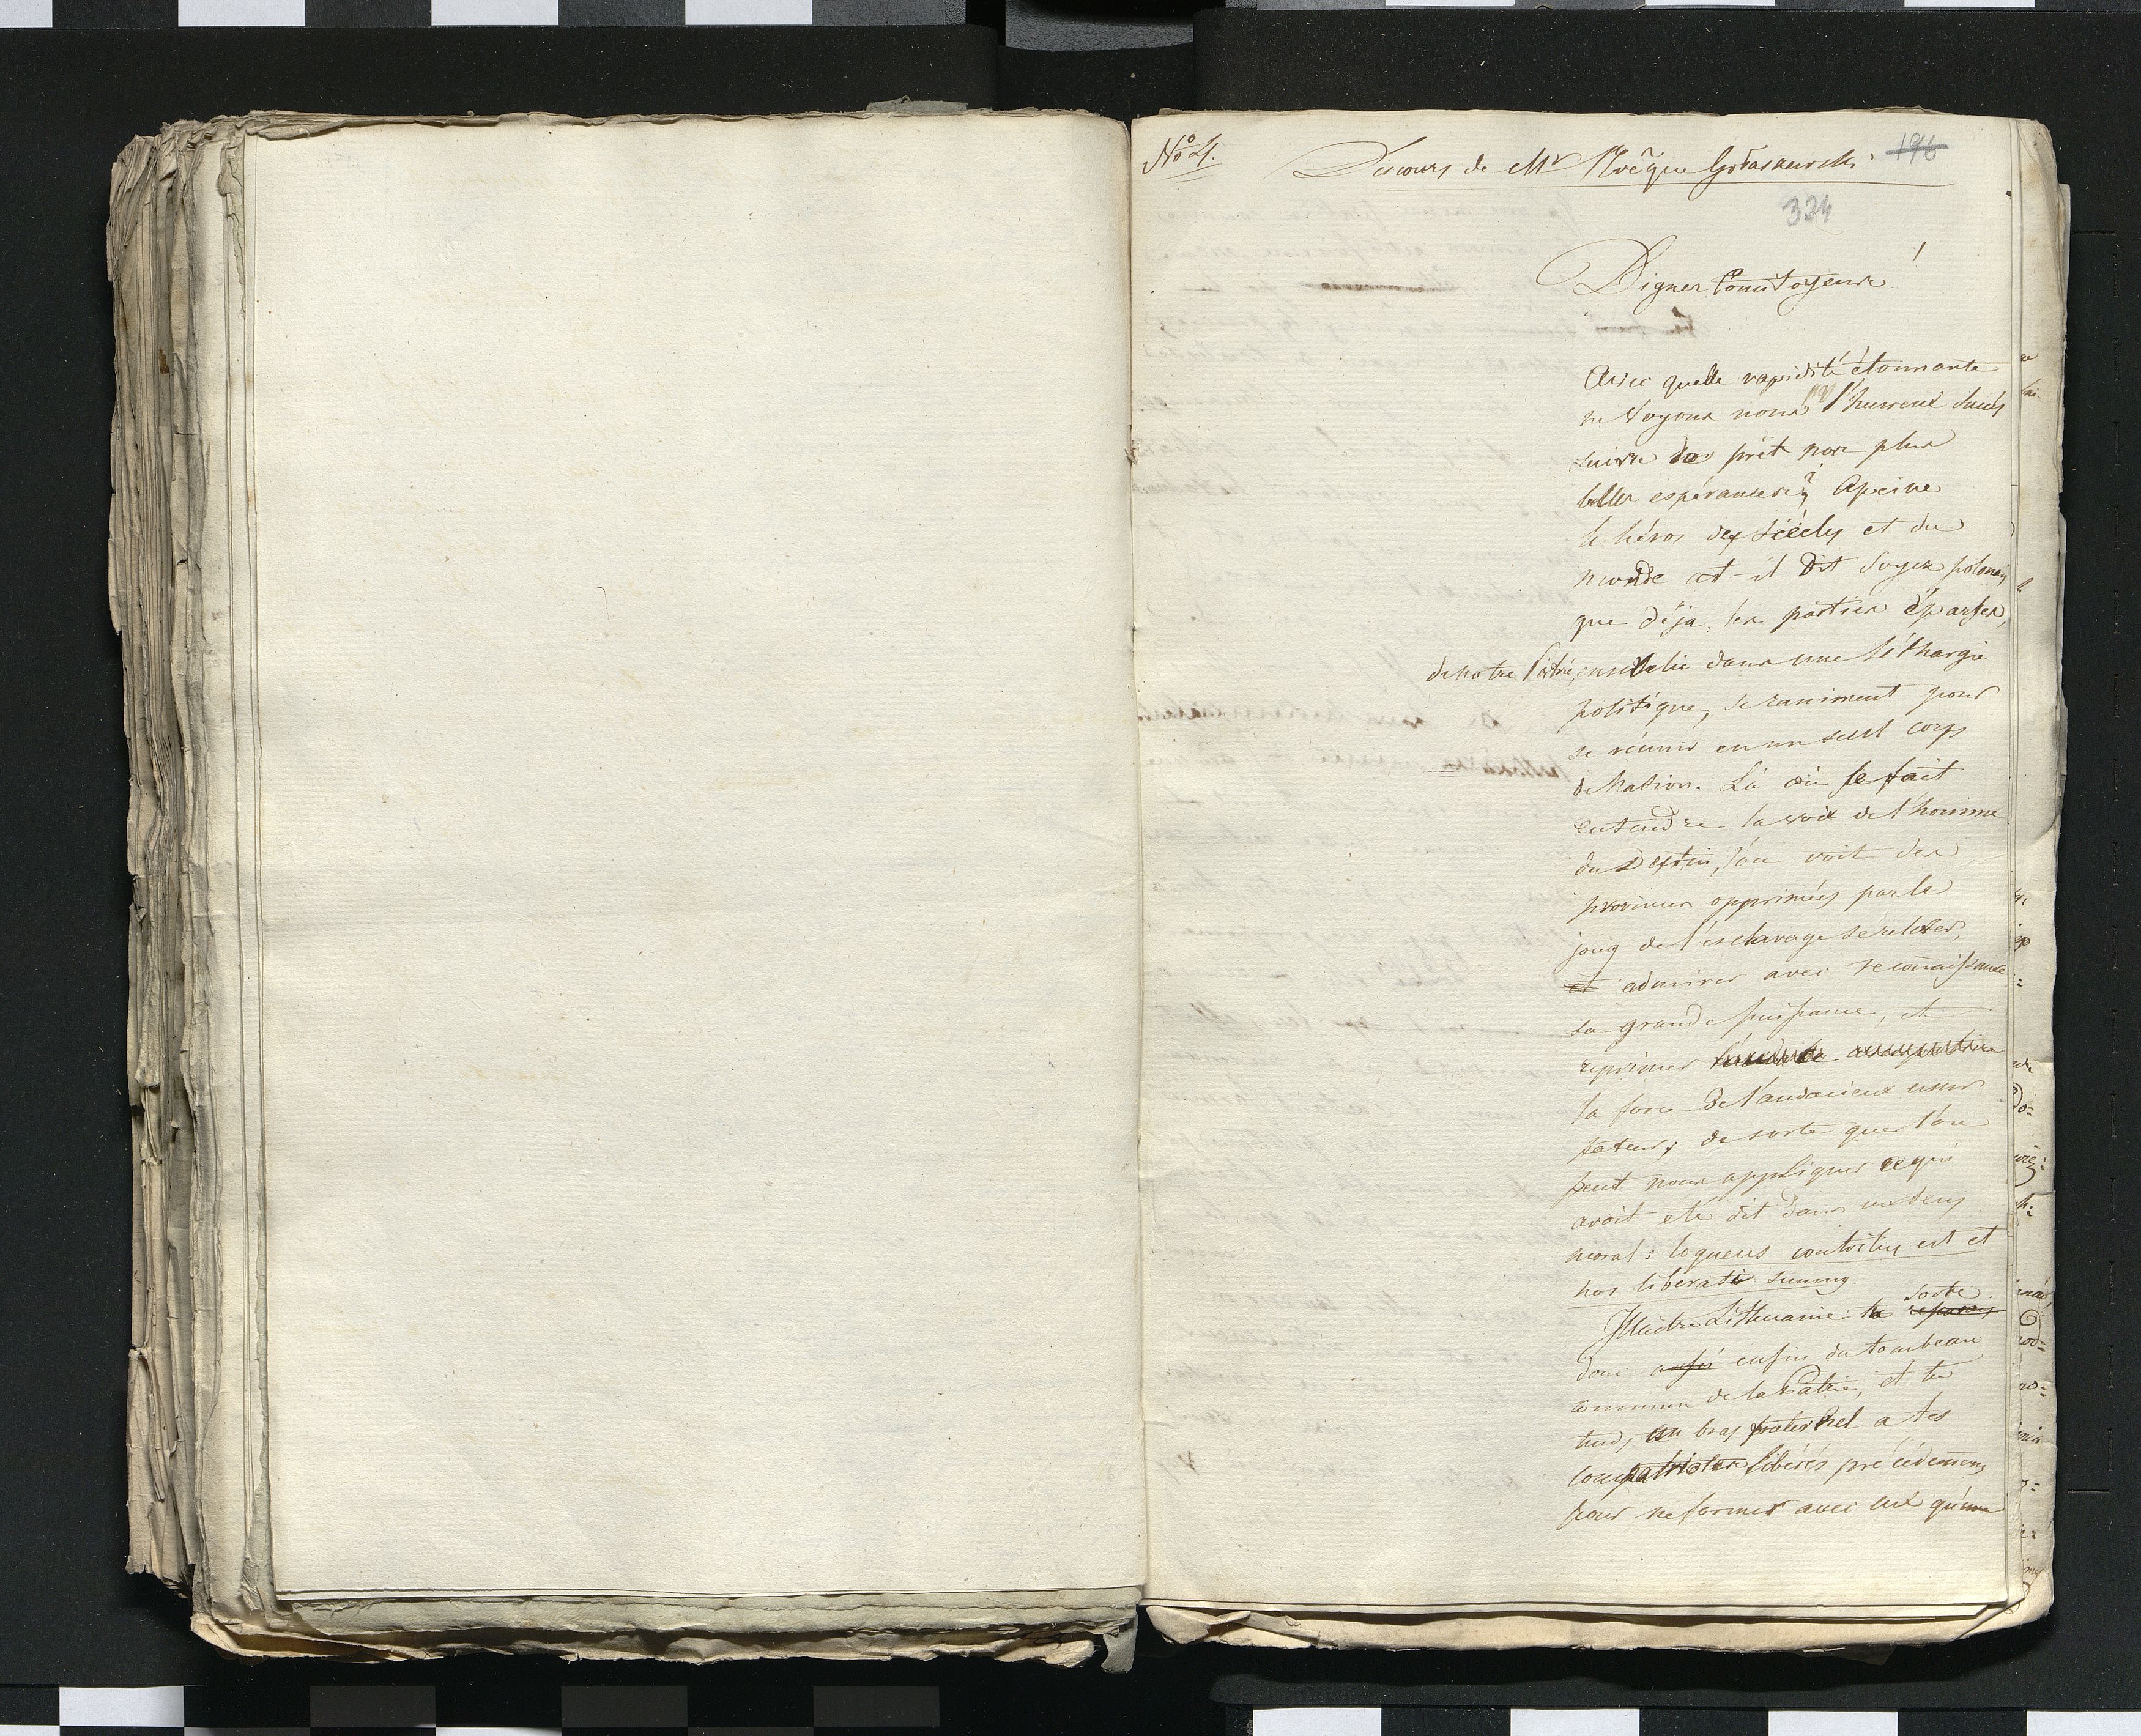 No 4.
Discours de Mr l'Evêque Gołaszewski
196
334
Dignes Concitoyens!
Avec quelle rapidité étonnante
ne voyons nous pas l'heureux succès
suivre de prêt nos plus
belles espérances? Apeine
le héros des siècles et du
monde at-il dit soyez polonais
que déja les parties éparses,
de notre Patrie, ensevelie dans une léthargie
politique, se raniment pour
se réunir en un seul corps
de Nation. Là où se fait
entendre la voix de l'homme
du Destin, l'on voit des
provinces opprimées par le
joug de l'esclavage se relever,
et admirer avec reconnaissance
sa grande puissance, et
reprimer
la force de l'audacieux usur
pateur; de sorte que l'on
peut nous appliquer ce qui
avoit eté dit dans un sens
moral: loqueus contritus est et
nos liberati sumus.
Illustre Lithuanie: tu sorte
donc enfin du tombeau
commun de la Patrie, et tu
tends un bras fraternel a tes
compatriotes libérés précédemens
pour ne former avec eux qu'une